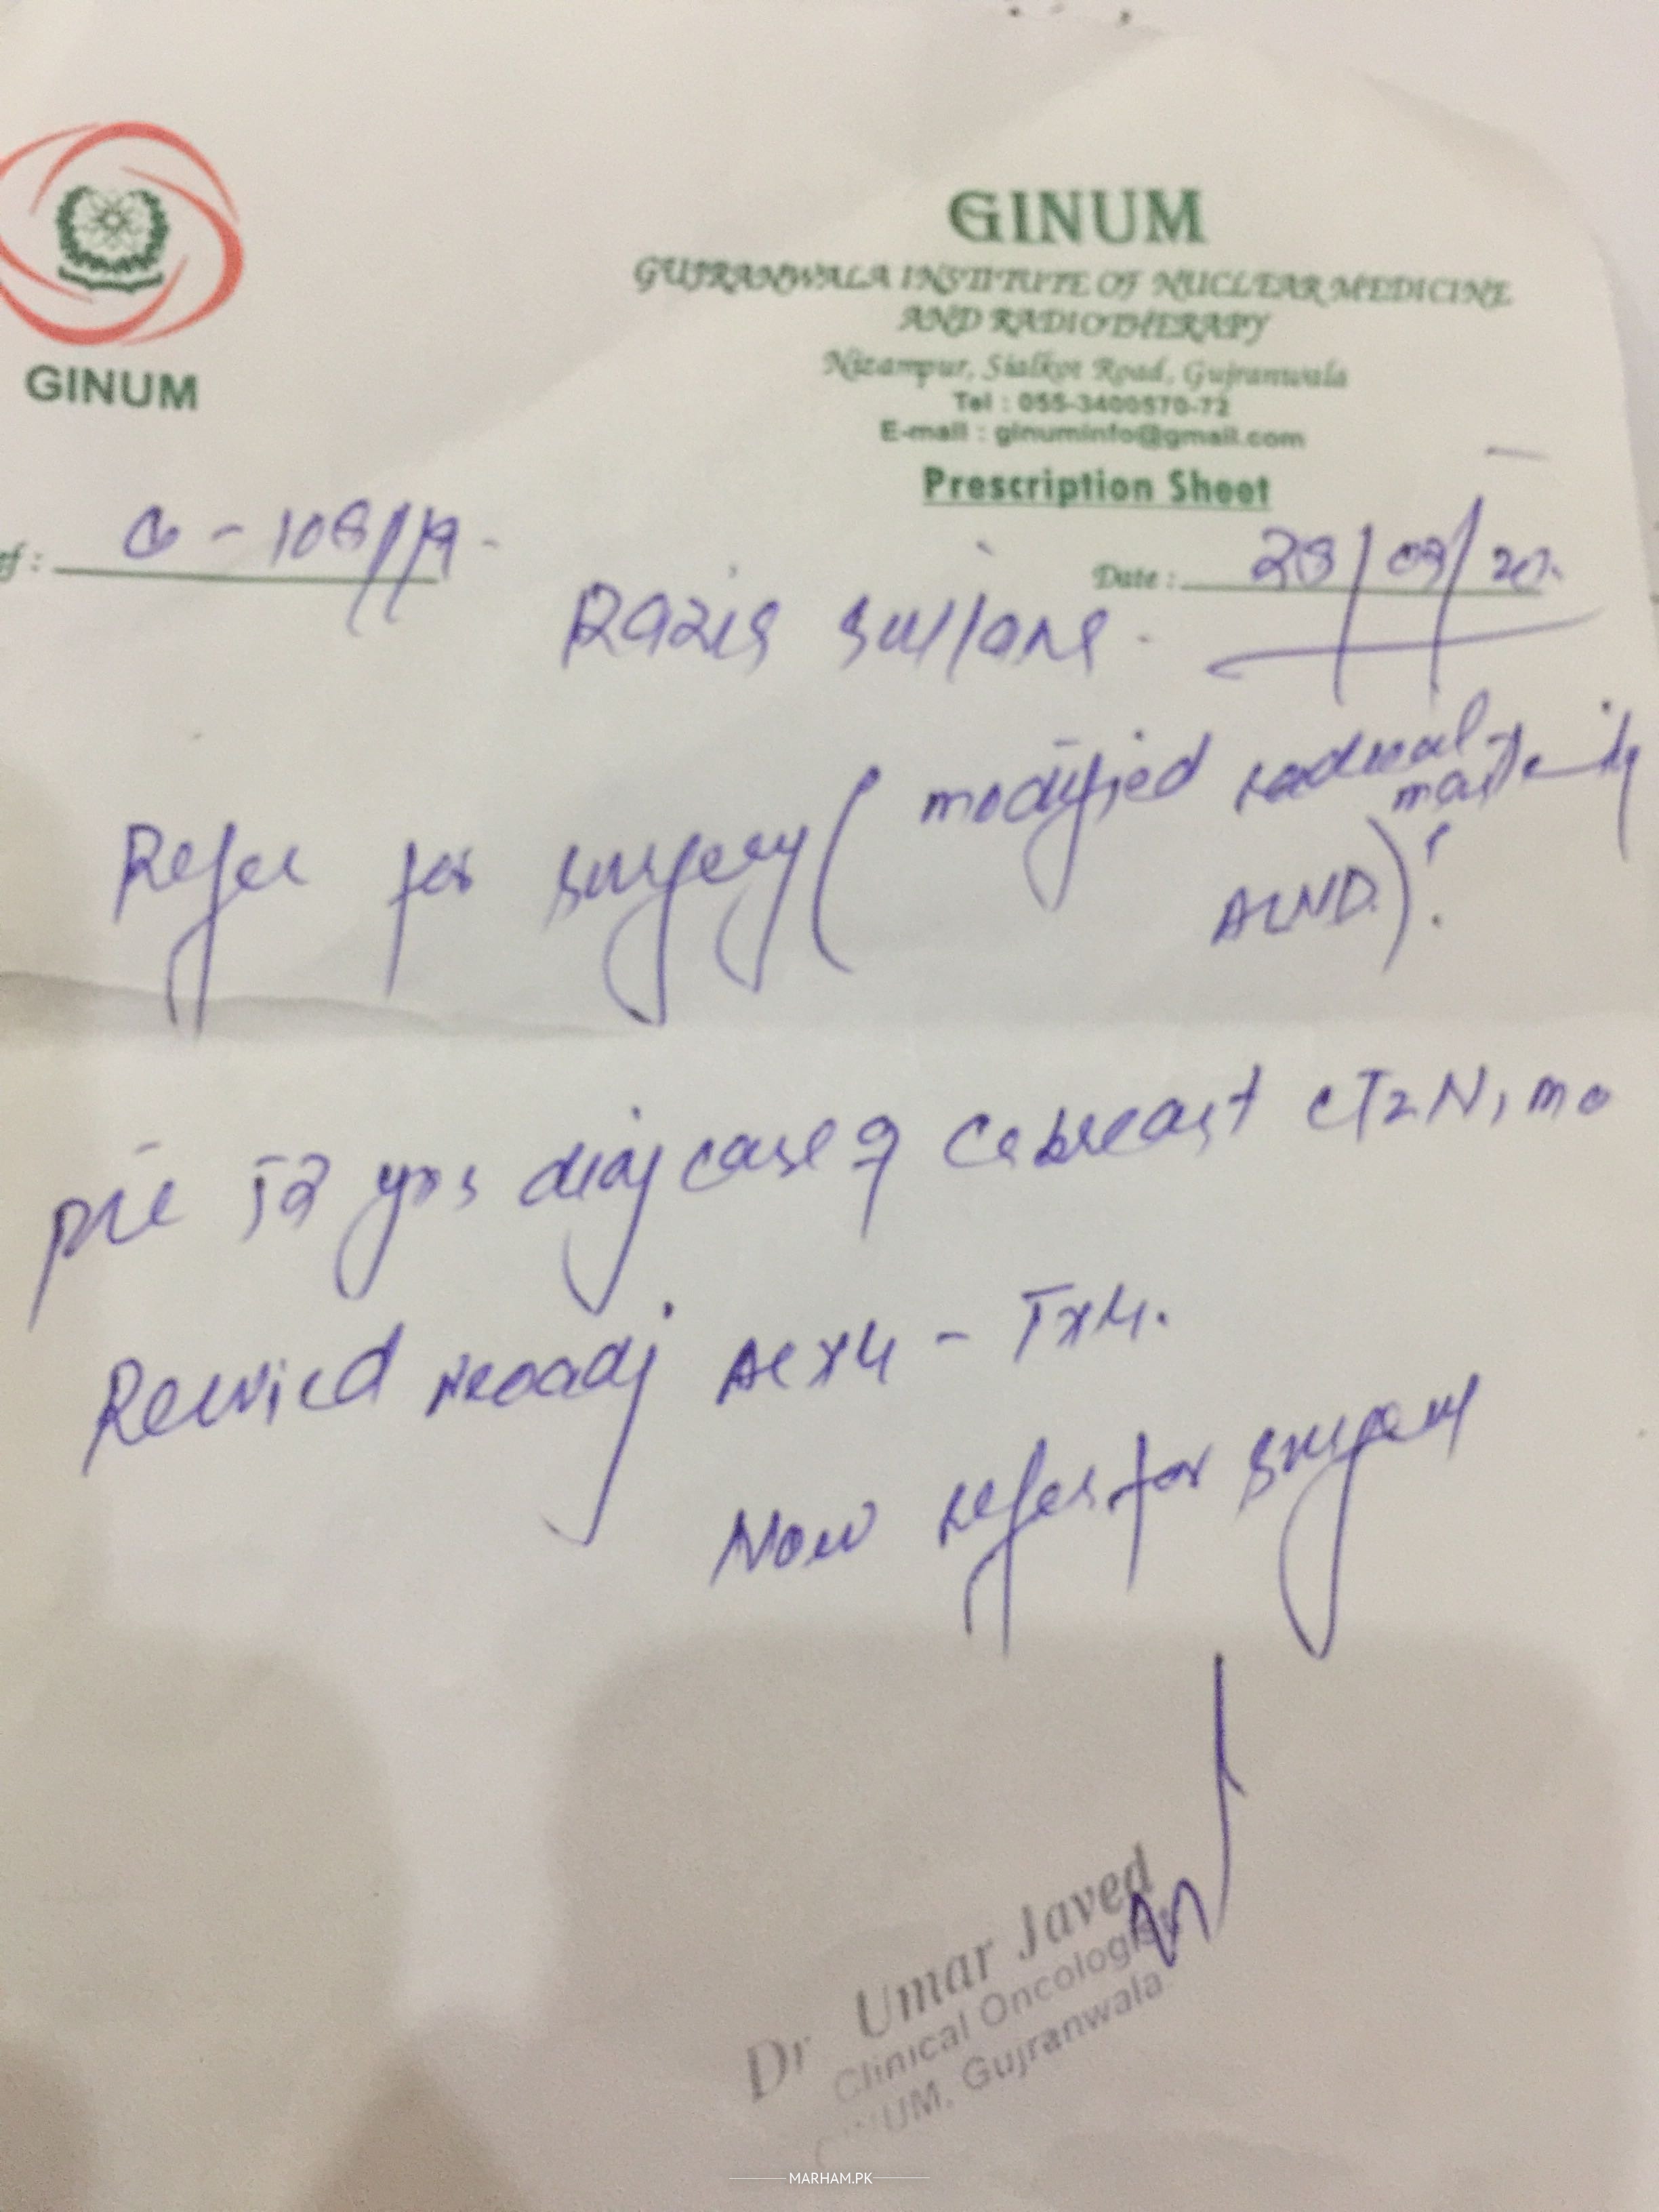 GINUM
GUJRANWALA INSTITUTE OF NUCLEAR MEDICINE
AND RADIOTHERAPY
Nizampur, Sialkot Road, Gujranwala
Tel : 055-3400570-72
E-mail : ginuminfo@gmail.com
Prescription Sheet
GINUM
ef : G - 108//19
Date : 28/03/20
Razia Sultana
Refer for surgery ( modified radical
ALND).
52 yrs diag case of Ca breast cT2 N1 M0
Recvied Neoadj AC x 4 - T x 4.
Now refer for surgery
Dr Umar Javed
Clinical Oncologist
UM, Gujranwala
MARHAM.PK